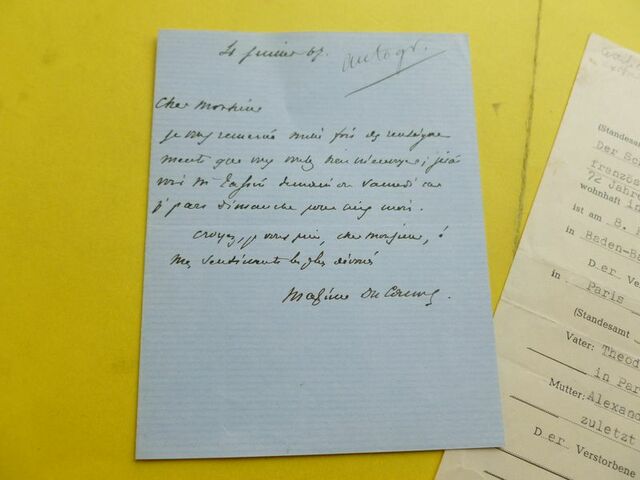 autogr.
Cher Monsieur
je vous remercie mille fois des renseigne
ments que vous voulez bien m'envoyer; j'irai
voir Mr demain ou samedi car
je pars dimanche pour cinq mois.
Croyez, je vous prie, cher monsieur, à
mes sentiments les plus dévoués
Maxime Du Camp.
(Standesam
Der Sch
französ
72 Jahre
wohnhaft in
ist am 8. F
in Baden-Ba
Der Ve
in Paris
(Standesamt
Vater: Theod
in Par
Mutter: Alexand
zuletzt
Der Verstorbene